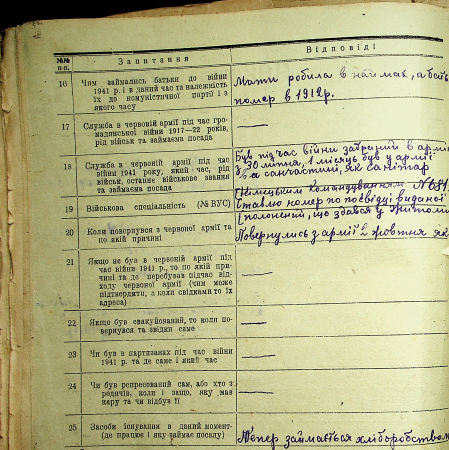 №№ п.п.
Запитання
Відповіді
16
Чим займались батьки до війни
1941 р. і в даний час та належність
їх до комуністичної партії і з
якого часу
Мати робила в наймах, а бать
помер в 1912 р.
17
Служба в червоній армії під час гро-
мадянської війни 1917—22 років,
рід військ та займаєма посада
18
Служба в червоній армії під час
війни 1941 року, який час, рід
військ, останнє військове звання
та займаєма посада
Був під час війни забраний в армію
з 30 літня, 1 місяць був у армії
за санчастині, як санітар
19
Військова спеціальність (№ ВУС)
Німецьким командуванням № 681
ставлю номер по посвідці виданої
20
Коли повернувся в червоної армії та
по якій причині
полонений, що здався у
Повернулись з армії 2 жовтня як
21
Якщо не був в червоній армії під
час війни 1941 р., то по якій при-
чині та де перебував підчас від-
ходу червоної армії (чим може
підтвердити, а коли свідками то їх
адреса)
22
Якщо був евакуйований, то коли по-
вернувся та звідки саме
23
Чи був в партизанах під час війни
1941 р. та де саме і який час
24
Чи був репресований сам, або хто з
родичів, коли і защо, яку мав
кару та чи відбув її
25
Засоби існування в даний момент-
(де працює і яку займає посаду)
Тепер займається хліборобством